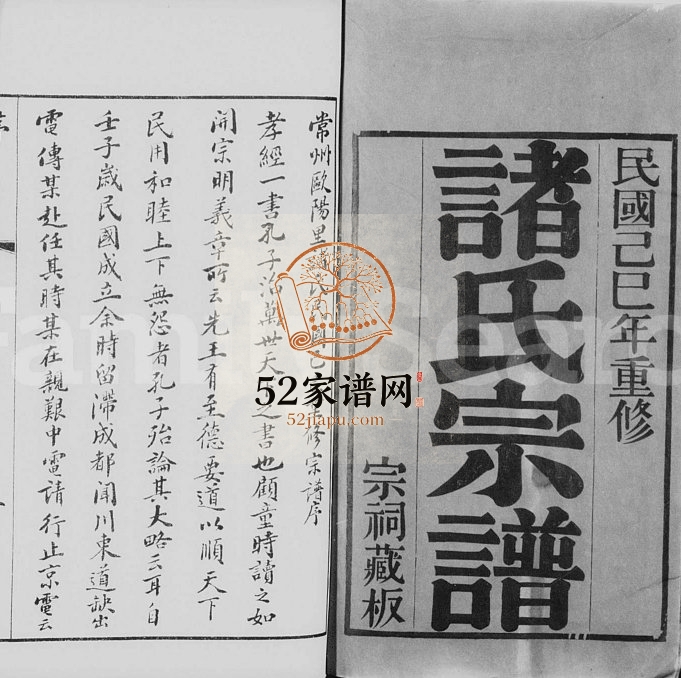 民國己巳年重修
諸氏宗譜
宗祠藏板
常州歐陽里修宗譜序
孝經一書孔子治萬世天之書也顧童時讀之如
開宗明義章所云先王有至德要道以順天下
民用和睦上下無怨者孔子殆論其大略云耳自
壬子歲民國成立余時留滯成都聞川東道缺出
電傳某赴任其時某在親艱中電請行止京電云
52家谱网
52jiapu.com